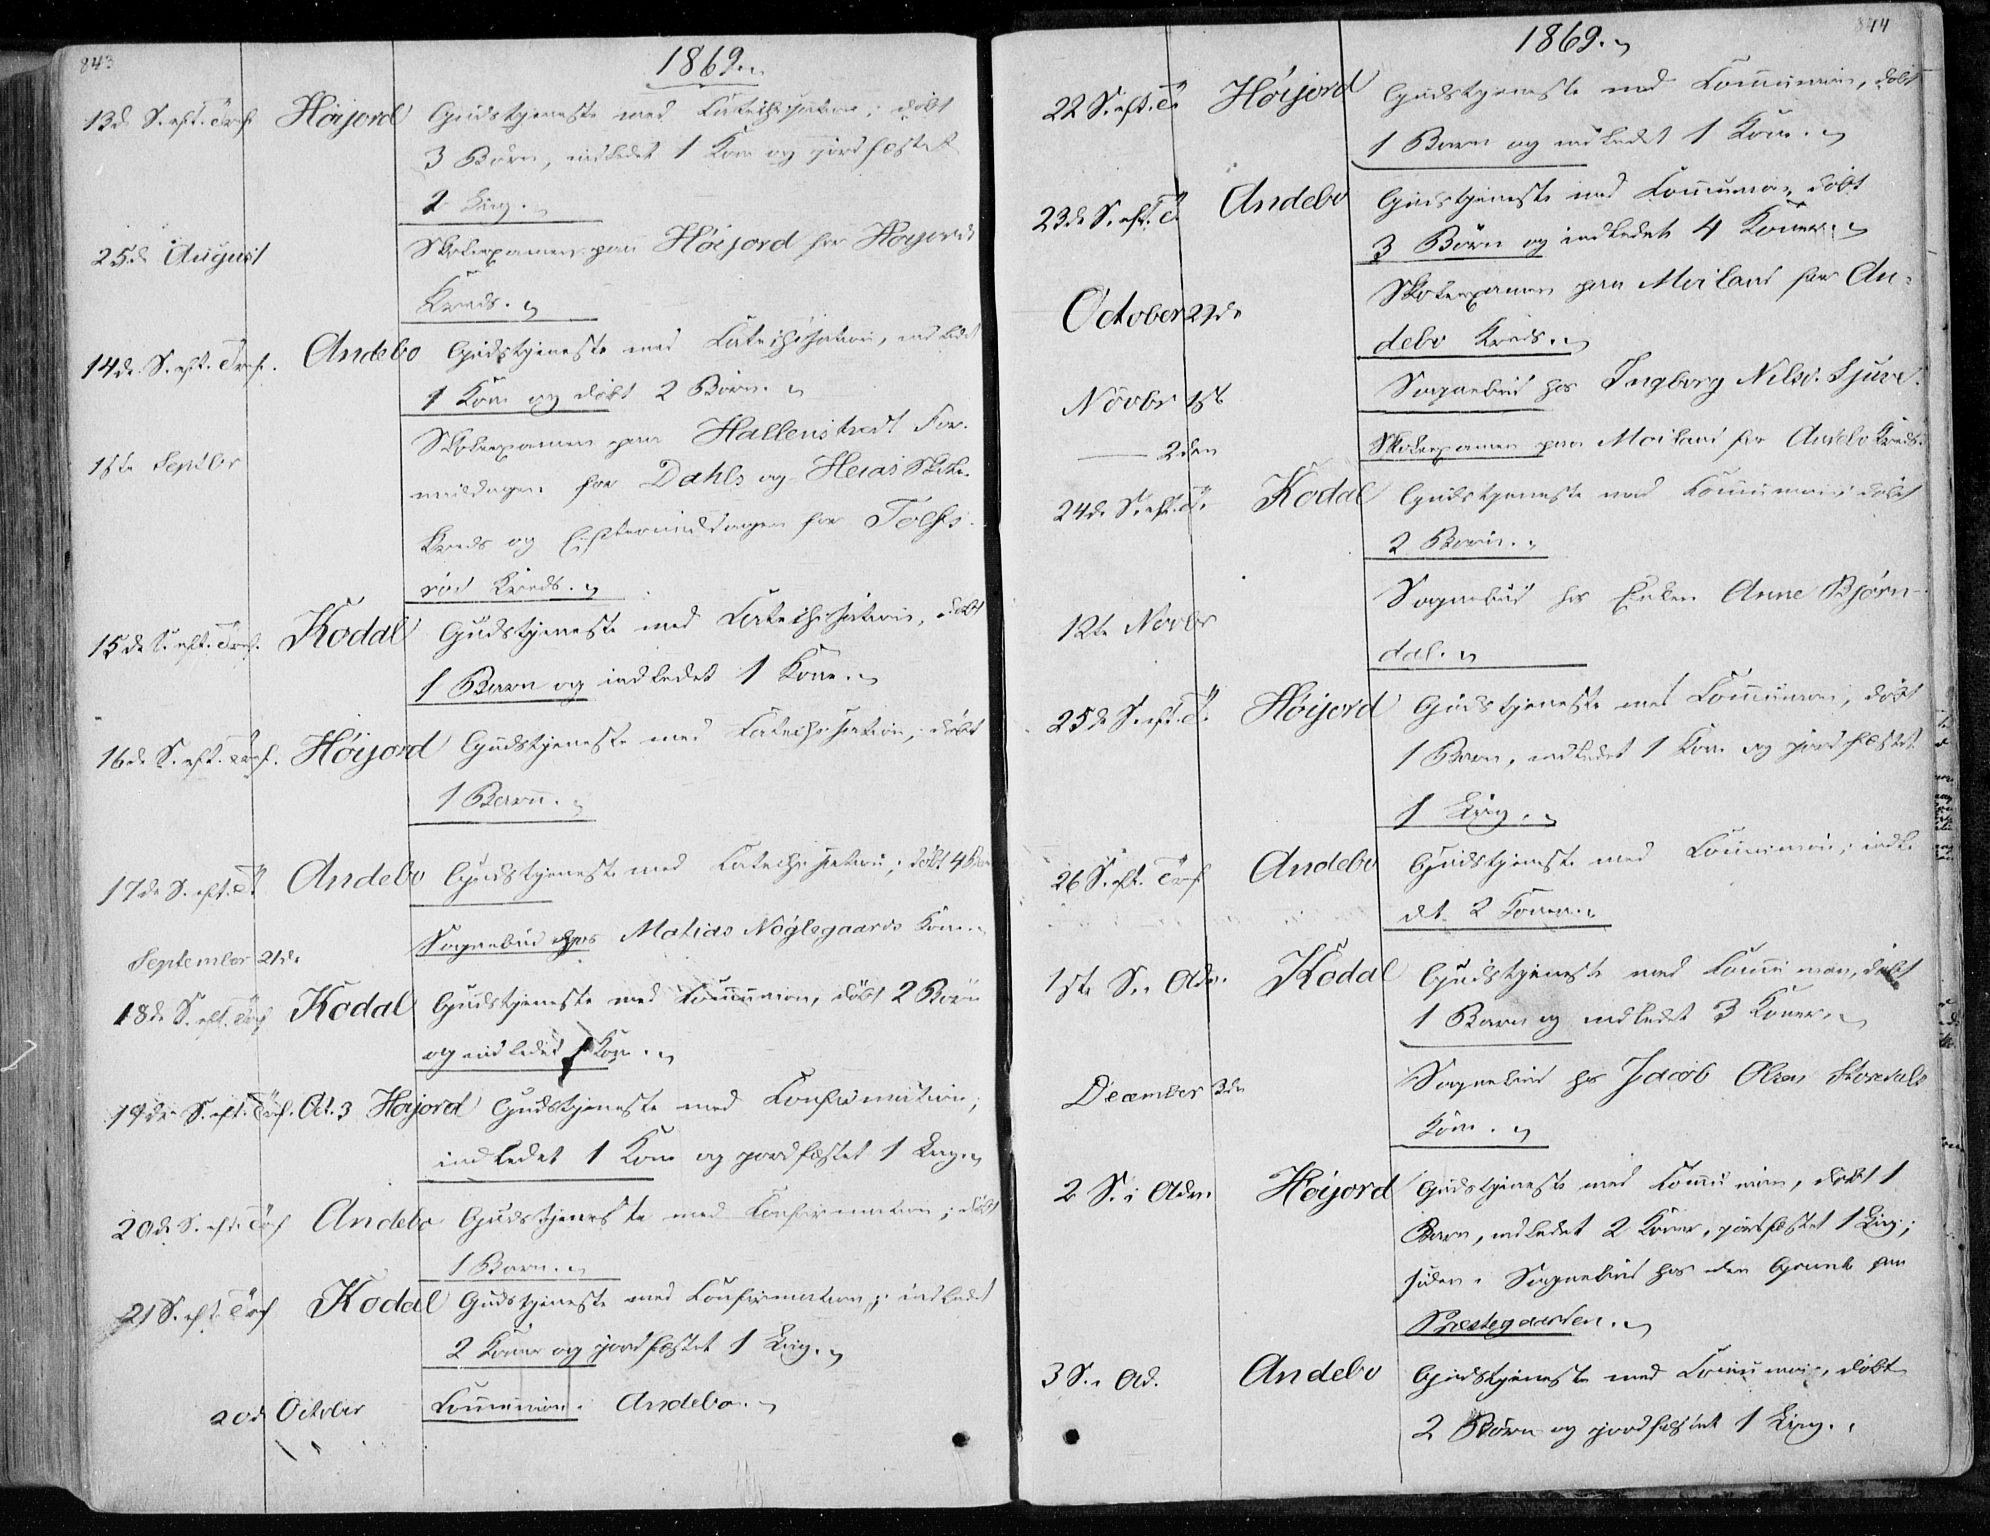 843
1869.
13de S. eft. Tref. Høijord Gudstjeneste med Catechisation; døbt
3 Børn, indledet 1 Kone og jordfæstet
2 Liig.
25de August Skoleexamen paa Høijord for Høijords
Kreds.
14de S. eft. Tref. Andebo Gudstjeneste med Catechisation, indledet
1 Kone og døbt 2 Børn.
1ste Septbr Skoleexamen paa Hallenstvedt For-
middagen for Dahls og Heias Skole-
kreds og Eftermiddagen for Tolfs-
rød Kreds.
15de S. eft. Tref. Kodal Gudstjeneste med Catechisation, døbt
1 Barn og indledet 1 Kone.
16de S. eft. Tref. Høijord Gudstjeneste med Catechisation, døbt
1 Barn.
17de S. eft. Tr. Andebo Gudstjeneste med Catechisation; døbt 4 Børn
September 21de Sognebud hos Matias Nøglegaards Kone.
18de S. eft. Tref Kodal Gudstjeneste med Communion, døbt 2 Børn
og indledet 1 Kone.
19de S. eft. Tref. Oct. 3 Høijord Gudstjeneste med Confirmation;
indledet 1 Kone og jordfæstet 1 Liig.
20de S. eft. Tref Andebo Gudstjeneste med Confirmation; døbt
1 Barn.
21 S. eft. Tref Kodal Gudstjeneste med Confirmation; indledet
2 Koner og jordfæstet 1 Liig.
20de October Communion i Andebo.
844
1869.
22 S. eft. Tr. Høijord Gudstjeneste med Communion, døbt
1 Barn og indledet 1 Kone.
23de S. eft. Tr. Andebo Gudstjeneste med Communion, døbt
3 Børn og indledet 4 Koner.
October 29de Skoleexamen paa Møiland for An-
debo Kreds.
Novbr 1ste Sognebud hos Ingborg Nilsd.
— 2den Skoleexamen paa Møiland for Andebo Kreds.
24de S. eft. Tr. Kodal Gudstjeneste med Communion; døbt
2 Børn.
12te Novbr Sognebud hos Enken Anne Bjørn-
dal.
25de S. eft. Tr. Høijord Gudstjeneste med Communion, døbt
1 Barn, indledet 1 Kone og jordfæstet
1 Liig.
26 S. eft. Tref Andebo Gudstjeneste med Communion; indle-
det 2 Koner.
1ste S. i Adv. Kodal Gudstjeneste med Communion, døbt
1 Barn og indledet 3 Koner.
December 3de Sognebud hos Jacob Olsen Stordals
Kone.
2 S. i Adv. Høijord Gudstjeneste med Communion, døbt 1
Barn, indledet 2 Koner, jordfæstet 1 Liig;
siden Sognebud hos den Gamle paa
Præstegaarden.
3 S. i Ad. Andebo Gudstjeneste med Communion, døbt
2 Børn og jordfæstet 1 Liig.